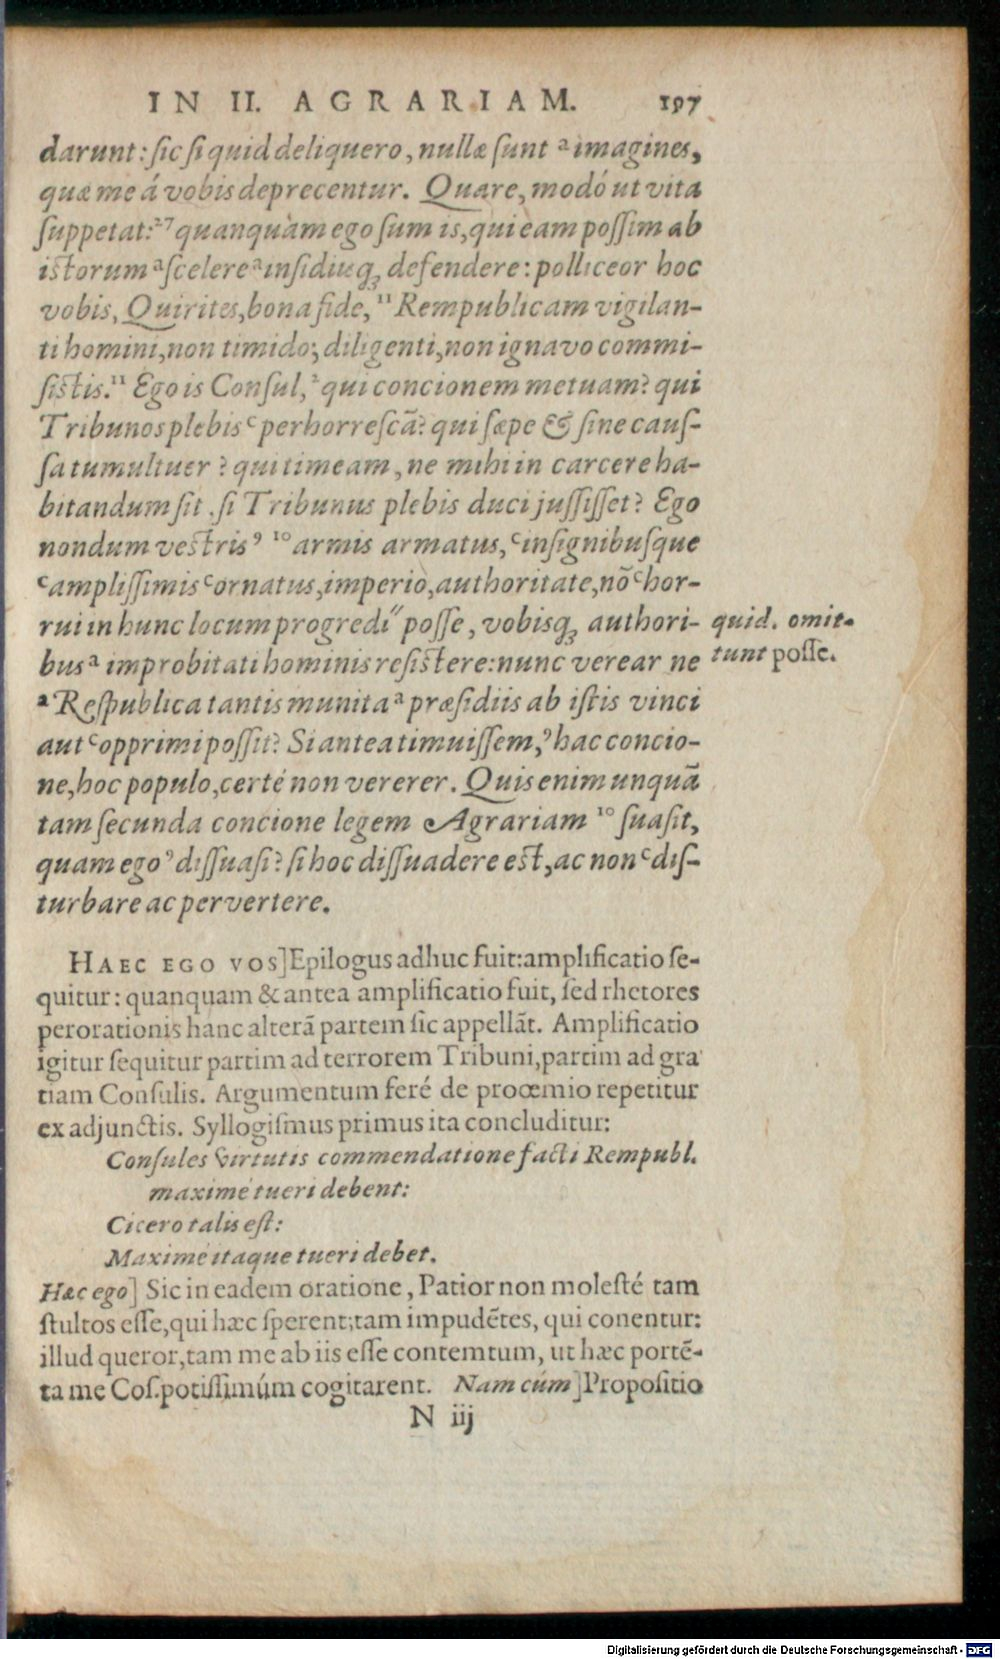 IN II. AGRARIAM. 197
darunt: sic si quid deliquero, nullæ sunt ᵃ imagines,
quæ me á vobis deprecentur. Quare, modó ut vita
suppetat:²⁷ quanquàm ego sum is, qui eam possim ab
istorum ᵃ scelere ᵃ insidiisqꝫ defendere: polliceor hoc
vobis, Quirites, bona fide, ¹¹ Rempublicam vigilan-
ti homini, non timido; diligenti, non ignavo commi-
sistis.¹¹ Ego is Consul, ² qui concionem metuam? qui
Tribunos plebis ᶜ perhorrescã? qui sæpe & sine caus-
sa tumultuer? qui timeam, ne mihi in carcere ha-
bitandum sit, si Tribunus plebis duci jussisset? Ego
nondum vestris⁹ ¹⁰ armis armatus, ᶜ insignibusque
ᶜ amplissimis ᶜ ornatus, imperio, authoritate, nõ ᶜ hor-
rui in hunc locum progredi" posse, vobisqꝫ authori-
bus ᵃ improbitati hominis resistere: nunc verear ne
ᵃ Respublica tantis munita ᵃ præsidiis ab istis vinci
aut ᶜ opprimi possit? Si antea timuissem, ⁹ hac concio-
ne, hoc populo, certé non vererer. Quis enim unquã
tam secunda concione legem Agrariam ¹⁰ suasit,
quam ego ⁹ dissuasi? si hoc dissuadere est, ac non ᶜ dis-
turbare ac pervertere.
quid. omit-
tunt posse.
HAEC EGO VOS] Epilogus adhuc fuit: amplificatio se-
quitur: quanquam & antea amplificatio fuit, sed rhetores
perorationis hanc alterã partem sic appellãt. Amplificatio
igitur sequitur partim ad terrorem Tribuni, partim ad gra
tiam Consulis. Argumentum feré de proœmio repetitur
ex adjunctis. Syllogismus primus ita concluditur:
Consules virtutis commendatione facti Rempubl.
maximé tueri debent:
Cicero talis est:
Maximé itaque tueri debet.
Hæc ego] Sic in eadem oratione, Patior non molesté tam
stultos esse, qui hæc sperent; tam impudẽtes, qui conentur:
illud queror, tam me ab iis esse contemtum, ut hæc portẽ-
ta me Cos. potissimúm cogitarent. Nam cúm] Propositio
N iij
Digitalisierung gefördert durch die Deutsche Forschungsgemeinschaft - DFG